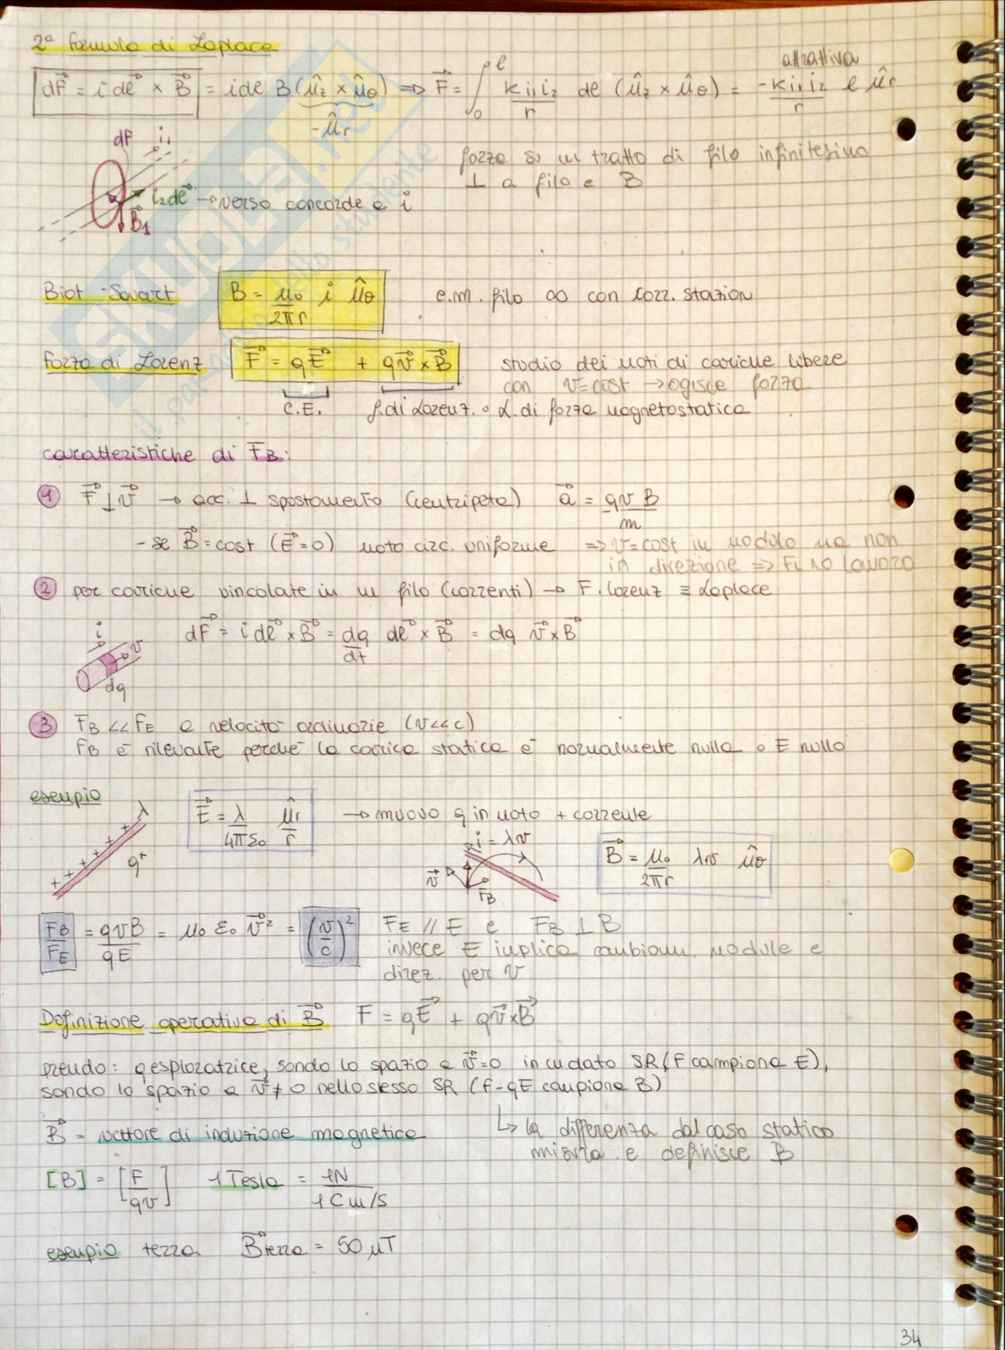 2ª Formula di Laplace
attrattiva
dF⃗ = i dl⃗ × B⃗ = idl B (û_z × û_θ) ⇒ F⃗ = ∫₀ˡ K i₁ i₂ / r dl (û_z × û_θ) = -K i₁ i₂ / r l û_r
-û_r
dF i₁
forza su un tratto di filo infinitesimo
⊥ a filo e B
i₂dl⃗ → verso concorde a i
B⃗₁
Biot-Savart B = μ₀/2πr i û_θ e.m. filo ∞ con corr. station
Forza di Lorenz F⃗ = qE⃗ + qv⃗×B⃗ studio dei moti di cariche libere
con v=cost → agisce forza
C.E. f. di Lorenz. o L. di forza magnetostatica
caratteristiche di F_B:
1 F⃗⊥v⃗ → acc. ⊥ spostamento (centripeta) a⃗ = qvB/m
- se B⃗=cost (E⃗=0) moto circ. uniforme ⇒ v=cost in modulo ma non
in direzione ⇒ FL no lavoro
2 per cariche vincolate in un filo (correnti) → F. Lorenz ≡ Laplace
dF⃗ = i dl⃗ × B⃗ = dq/dt dl⃗ × B⃗ = dq v⃗×B⃗
i v
dq
3 F_B << F_E a velocità ordinarie (v<<c)
F_B è rilevante perché la carica statica è normalmente nulla o E nullo
esempio
λ
q⁺
E⃗ = λ/4πε₀ û_r/r → muovo q in moto + corrente
i = λv
v⃗ F_B
B⃗ = μ₀/2πr λv û_θ
F_B/F_E = qvB/qE = μ₀ ε₀ v⃗² = (v/c)² F_E // E e F_B ⊥ B
invece E implica cambiam. module e
direz. per v
Definizione operativa di B⃗ F = qE⃗ + qv⃗×B⃗
prendo: q esploratrice, sondo lo spazio a v⃗=0 in un dato SR (F campiona E),
sondo lo spazio a v⃗≠0 nello stesso SR (F-qE campiona B)
↳ la differenza dal caso statico
misura e definisce B
B⃗ = vettore di induzione magnetica
[B] = [F/qv] 1 Tesla = 1N / 1C m/s
esempio terra B⃗terra = 50 μT
34